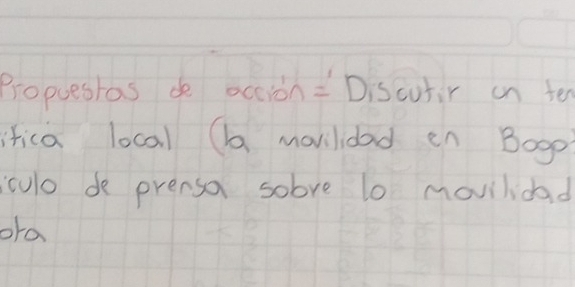 Propuestas de acción = Discutir un tem
itica local (la movilidad en Bogot
iculo de prensa sobre la movilidad
ota